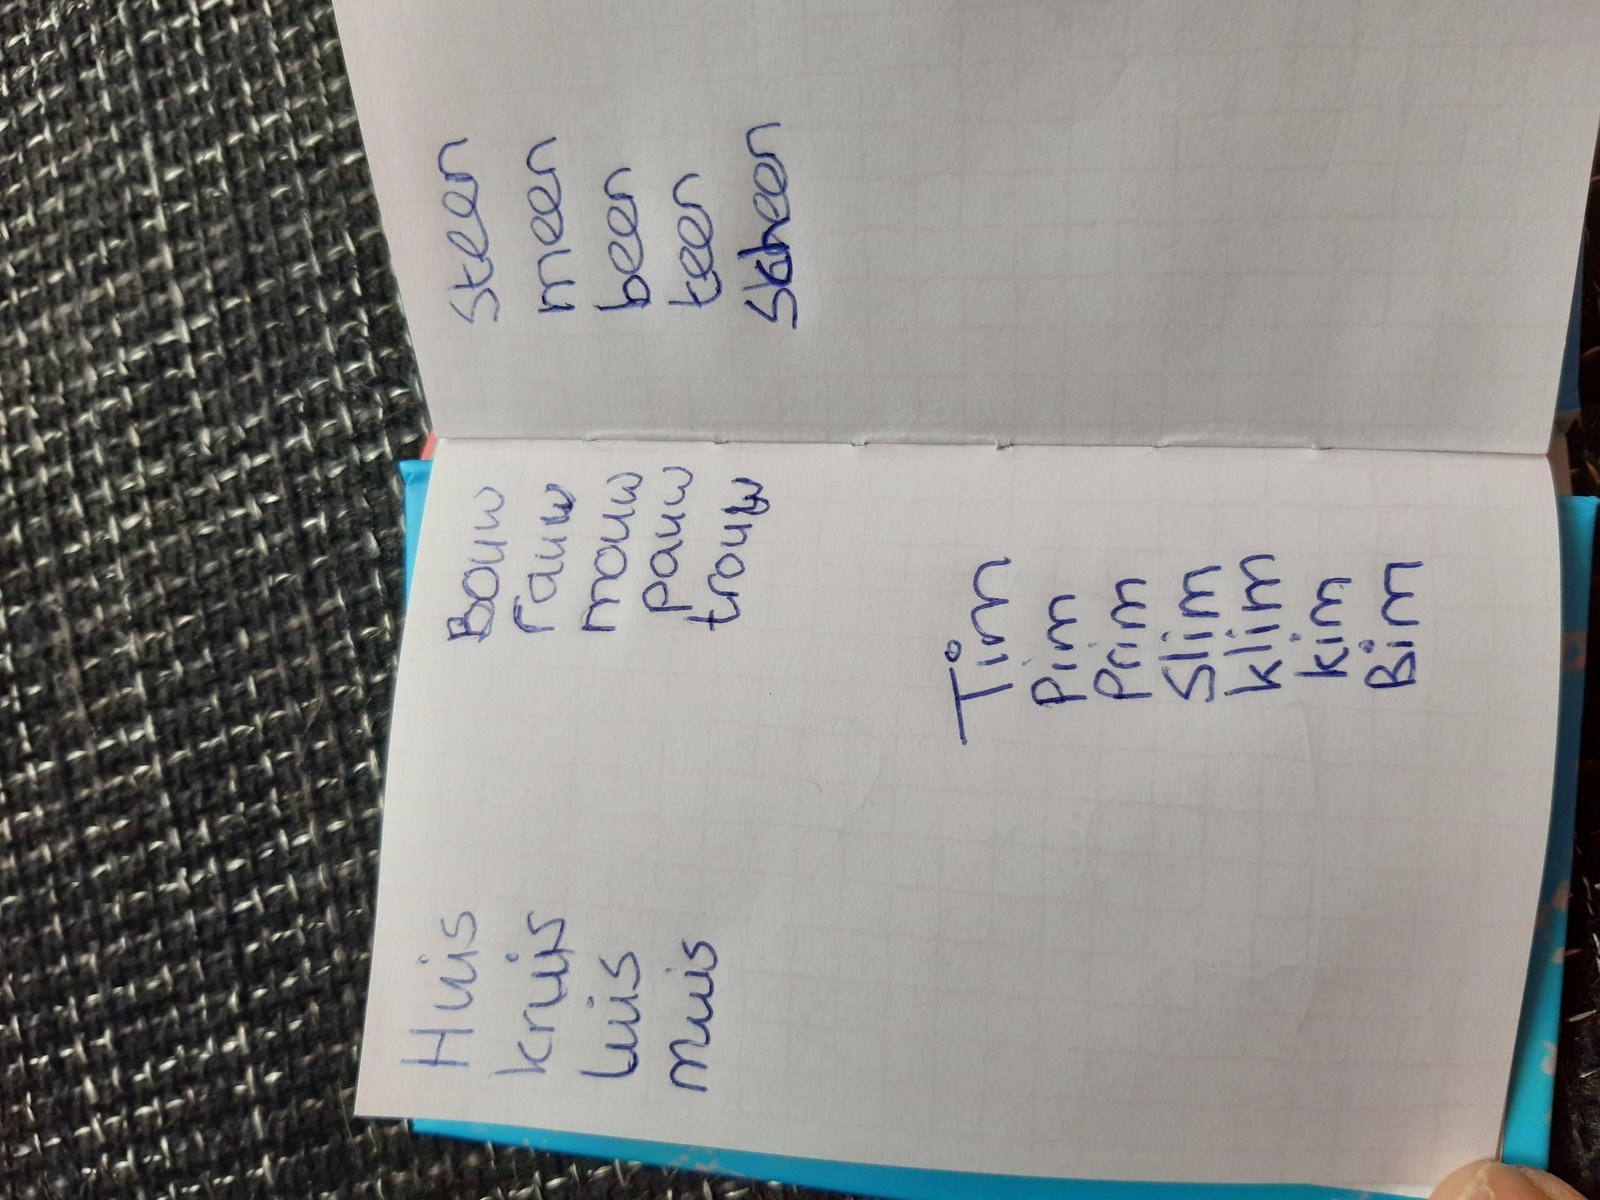 Huis
kruis
Luis
muis
Bouw
rauw
mouw
pauw
trouw
Tim
Pim
Prim
Slim
klim
kim
Bim
Steen
meen
been
teen